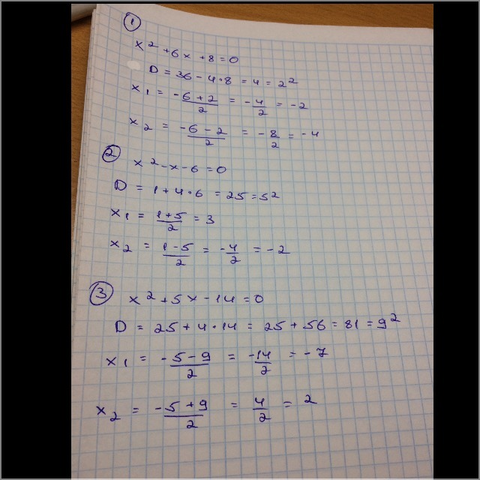 1
x² + 6x + 8 = 0
D = 36 - 4·8 = 4 = 2²
x₁ = (-6+2)/2 = -4/2 = -2
x₂ = (-6-2)/2 = -8/2 = -4
2
x² - x - 6 = 0
D = 1 + 4·6 = 25 = 5²
x₁ = (1+5)/2 = 3
x₂ = (1-5)/2 = -4/2 = -2
3
x² + 5x - 14 = 0
D = 25 + 4·14 = 25 + 56 = 81 = 9²
x₁ = (-5-9)/2 = -14/2 = -7
x₂ = (-5+9)/2 = 4/2 = 2